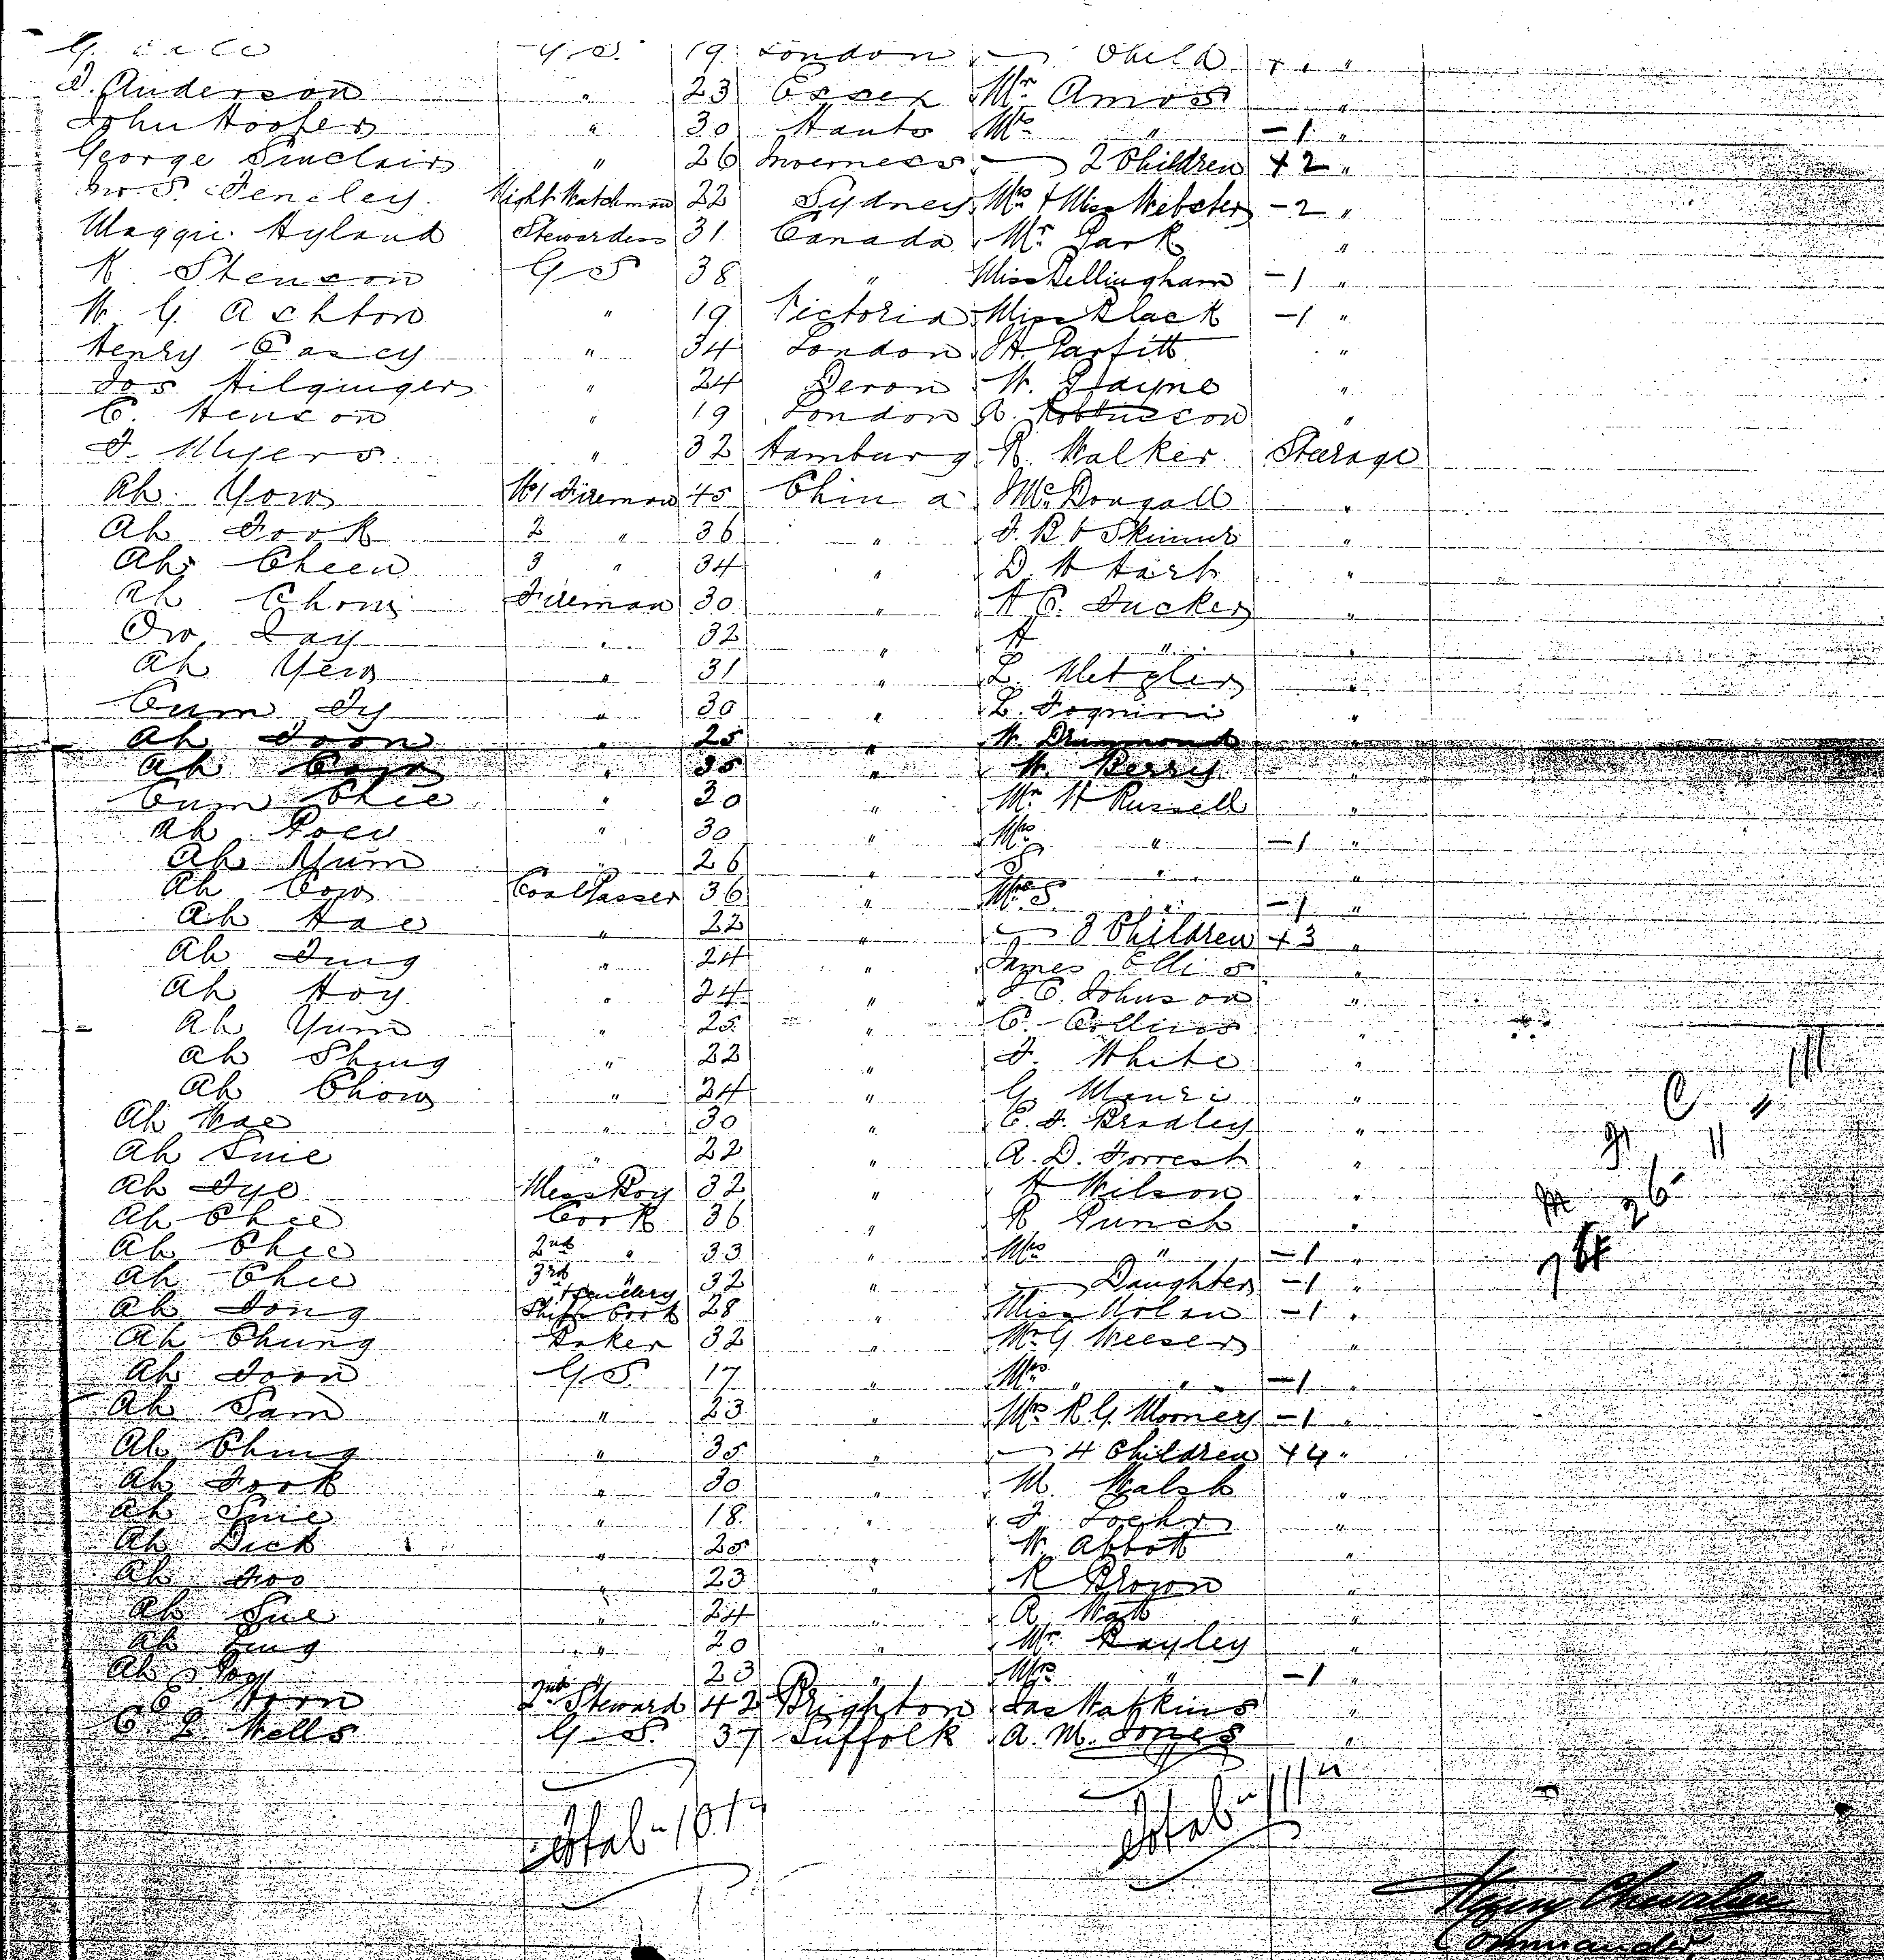 19 London — Child " "
J. Anderson " 23 Essex Mr Amos "
John Hooper " 30 Hants Mrs " -1 "
George Sinclair " 26 Inverness — 2 Children +2 "
Night Watchman 22 Sydney Mrs & Miss Webster -2 "
Maggie Hyland Stewardess 31 Canada Mr Park "
K Stenson G S 38 " Miss Bellingham -1 "
W. G. Ashton " 19 Victoria Miss Black -1 "
Henry Casey " 34 London H. Parfitt "
Jos Hilginger " 24 Devon W. Payne "
C. Henson " 19 London "
F. Myers " 32 Hamburg R. Walker Steerage
Ah Yow No 1 Fireman 45 China J McDougall "
Ah Fook 2 " 36 " Skinner "
Ah Cheen 3 " 34 " D. H Hart "
Ah Chow Fireman 30 " H C. Tucker "
Ow Tay " 32 " H " "
Ah Yew " 31 " L. Metzler "
Cum Ty " 30 " L. Fognini "
Ah Foon " 25 " W. Drummond "
Ah " 35 " W. Berry "
Cum Chee " 30 " Mr H Russell "
Ah " 30 " Mrs " -1 "
Ah Yum " 26 " S " "
Ah Cow Coal Passer 36 " Mrs S. " -1 "
Ah Hae " 22 " — 3 Children +3 "
Ah Tung " 24 " James Ellis "
Ah Hoy " 24 " J C. Johnson "
Ah Yum " 25 " C. Collins "
Ah Shing " 22 " F. White "
Ah Chow " 24 " G. "
Ah Wae " 30 " E. J. Bradley "
Ah Suie " 22 " A. D. Forrest "
Ah Tye Mess Boy 32 " H Wilson "
Ah Chee Cook 36 " R Punch "
Ah Chee 2nd " 33 " Mrs " -1 "
Ah Chee 3rd " 32 " — Daughter -1 "
Ah Tong Ships Cook 28 " Miss Nolan -1 "
Ah Chung Baker 32 " Mr G Weeser "
Ah Foon G S 17 " Mrs " " -1 "
Ah Sam " 23 " Mrs R. G. Mooney -1 "
Ah Ching " 35 " — 4 Children +4 "
Ah Fook " 30 " M. Walsh "
Ah Suie " 18 " F. Locke "
Ah Dick " 25 " W. Abbott "
Ah Foo " 23 " R Brown "
Ah Sue " 24 " A. Watt "
Ah Ling " 20 " Mr Bayley "
Ah Poy " 23 " Mrs " -1 "
E Horn 2nd Steward 42 Brighton Jas Watkins "
C. L. Wells G S. 37 Suffolk A. M. Jones "
M F C
74 26 11 " 111
Total 101 Total 111
Henry Chevalier
Commander